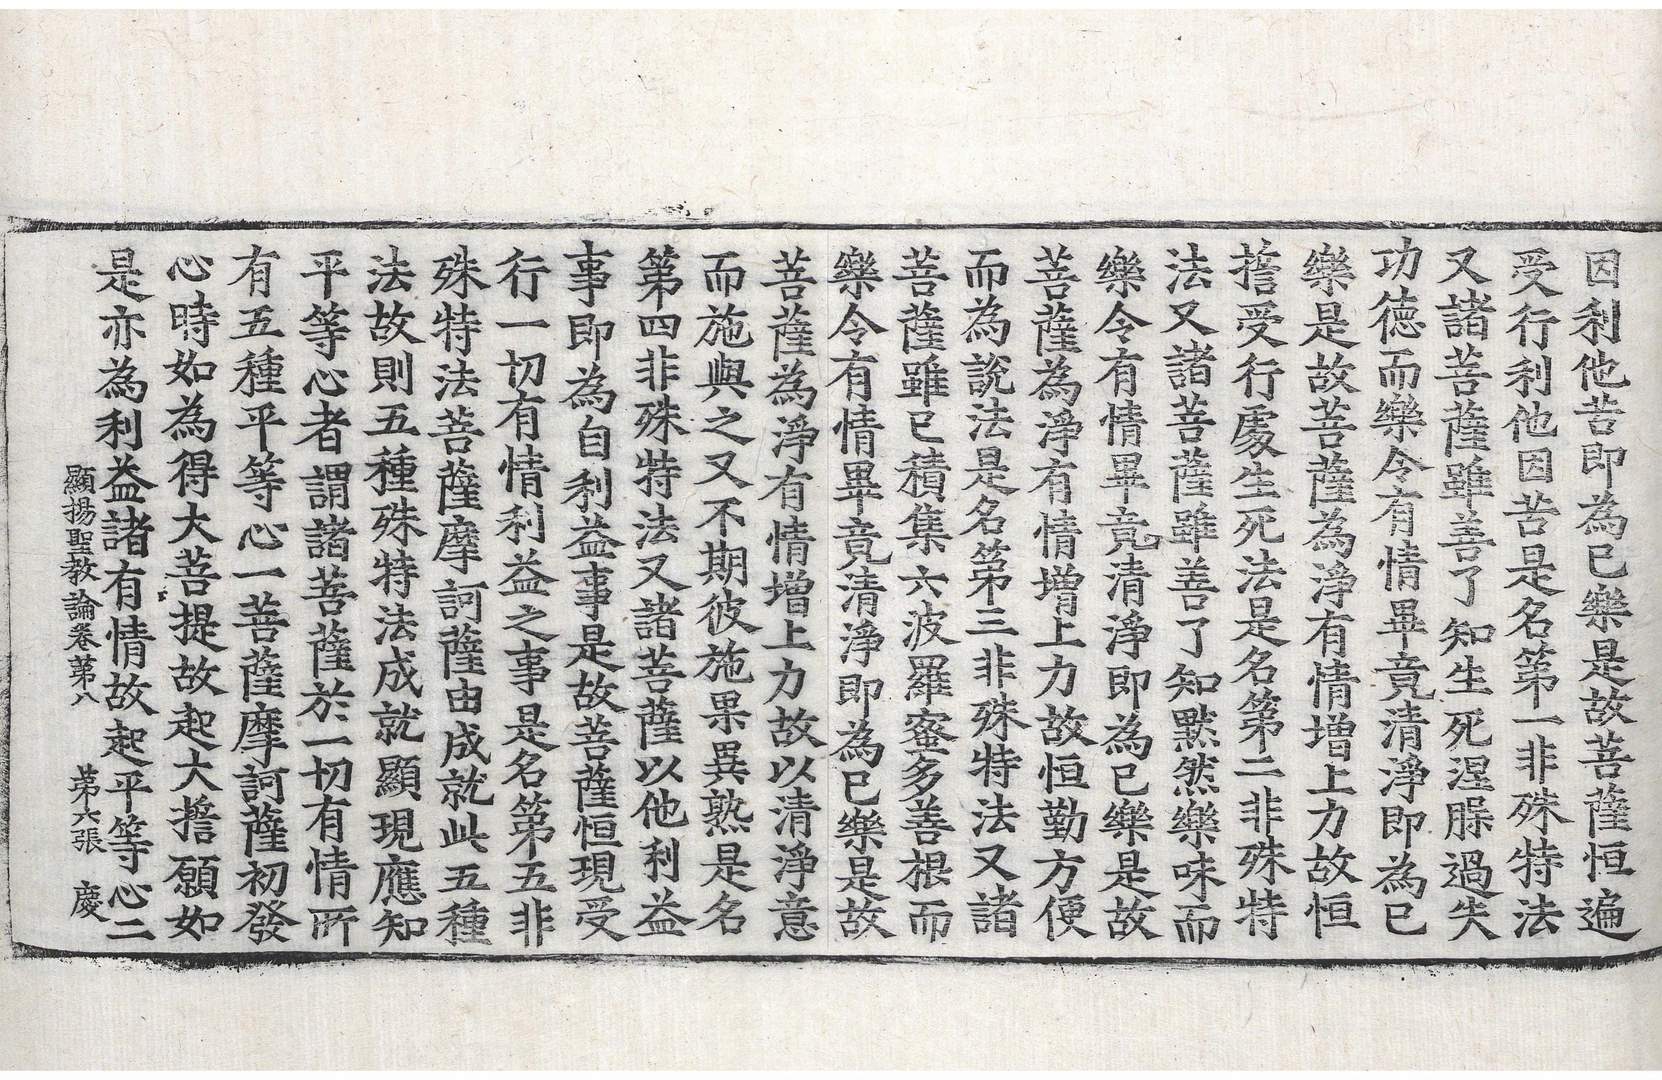 因利他苦即為已樂是故菩薩恒遍
受行利他因苦是名第一非殊特法
又諸菩薩雖善了知生死涅槃過失
功德而樂令有情畢竟清淨即為已
樂是故菩薩為淨有情增上力故恒
擔受行處生死法是名第二非殊特
法又諸菩薩雖善了知默然樂味而
樂令有情畢竟清淨即為已樂是故
菩薩為淨有情增上力故恒勤方便
而為說法是名第三非殊特法又諸
菩薩雖已積集六波羅蜜多善根而
樂令有情畢竟清淨即為已樂是故
菩薩為淨有情增上力故以清淨意
而施與之又不期彼施果異熟是名
第四非殊特法又諸菩薩以他利益
事即為自利益事是故菩薩恒現受
行一切有情利益之事是名第五非
殊特法菩薩摩訶薩由成就此五種
法故則五種殊特法成就顯現應知
平等心者謂諸菩薩於一切有情所
有五種平等心一菩薩摩訶薩初發
心時如為得大菩提故起大擔願如
是亦為利益諸有情故起平等心二
顯揚聖教論卷第八　第六張　慶